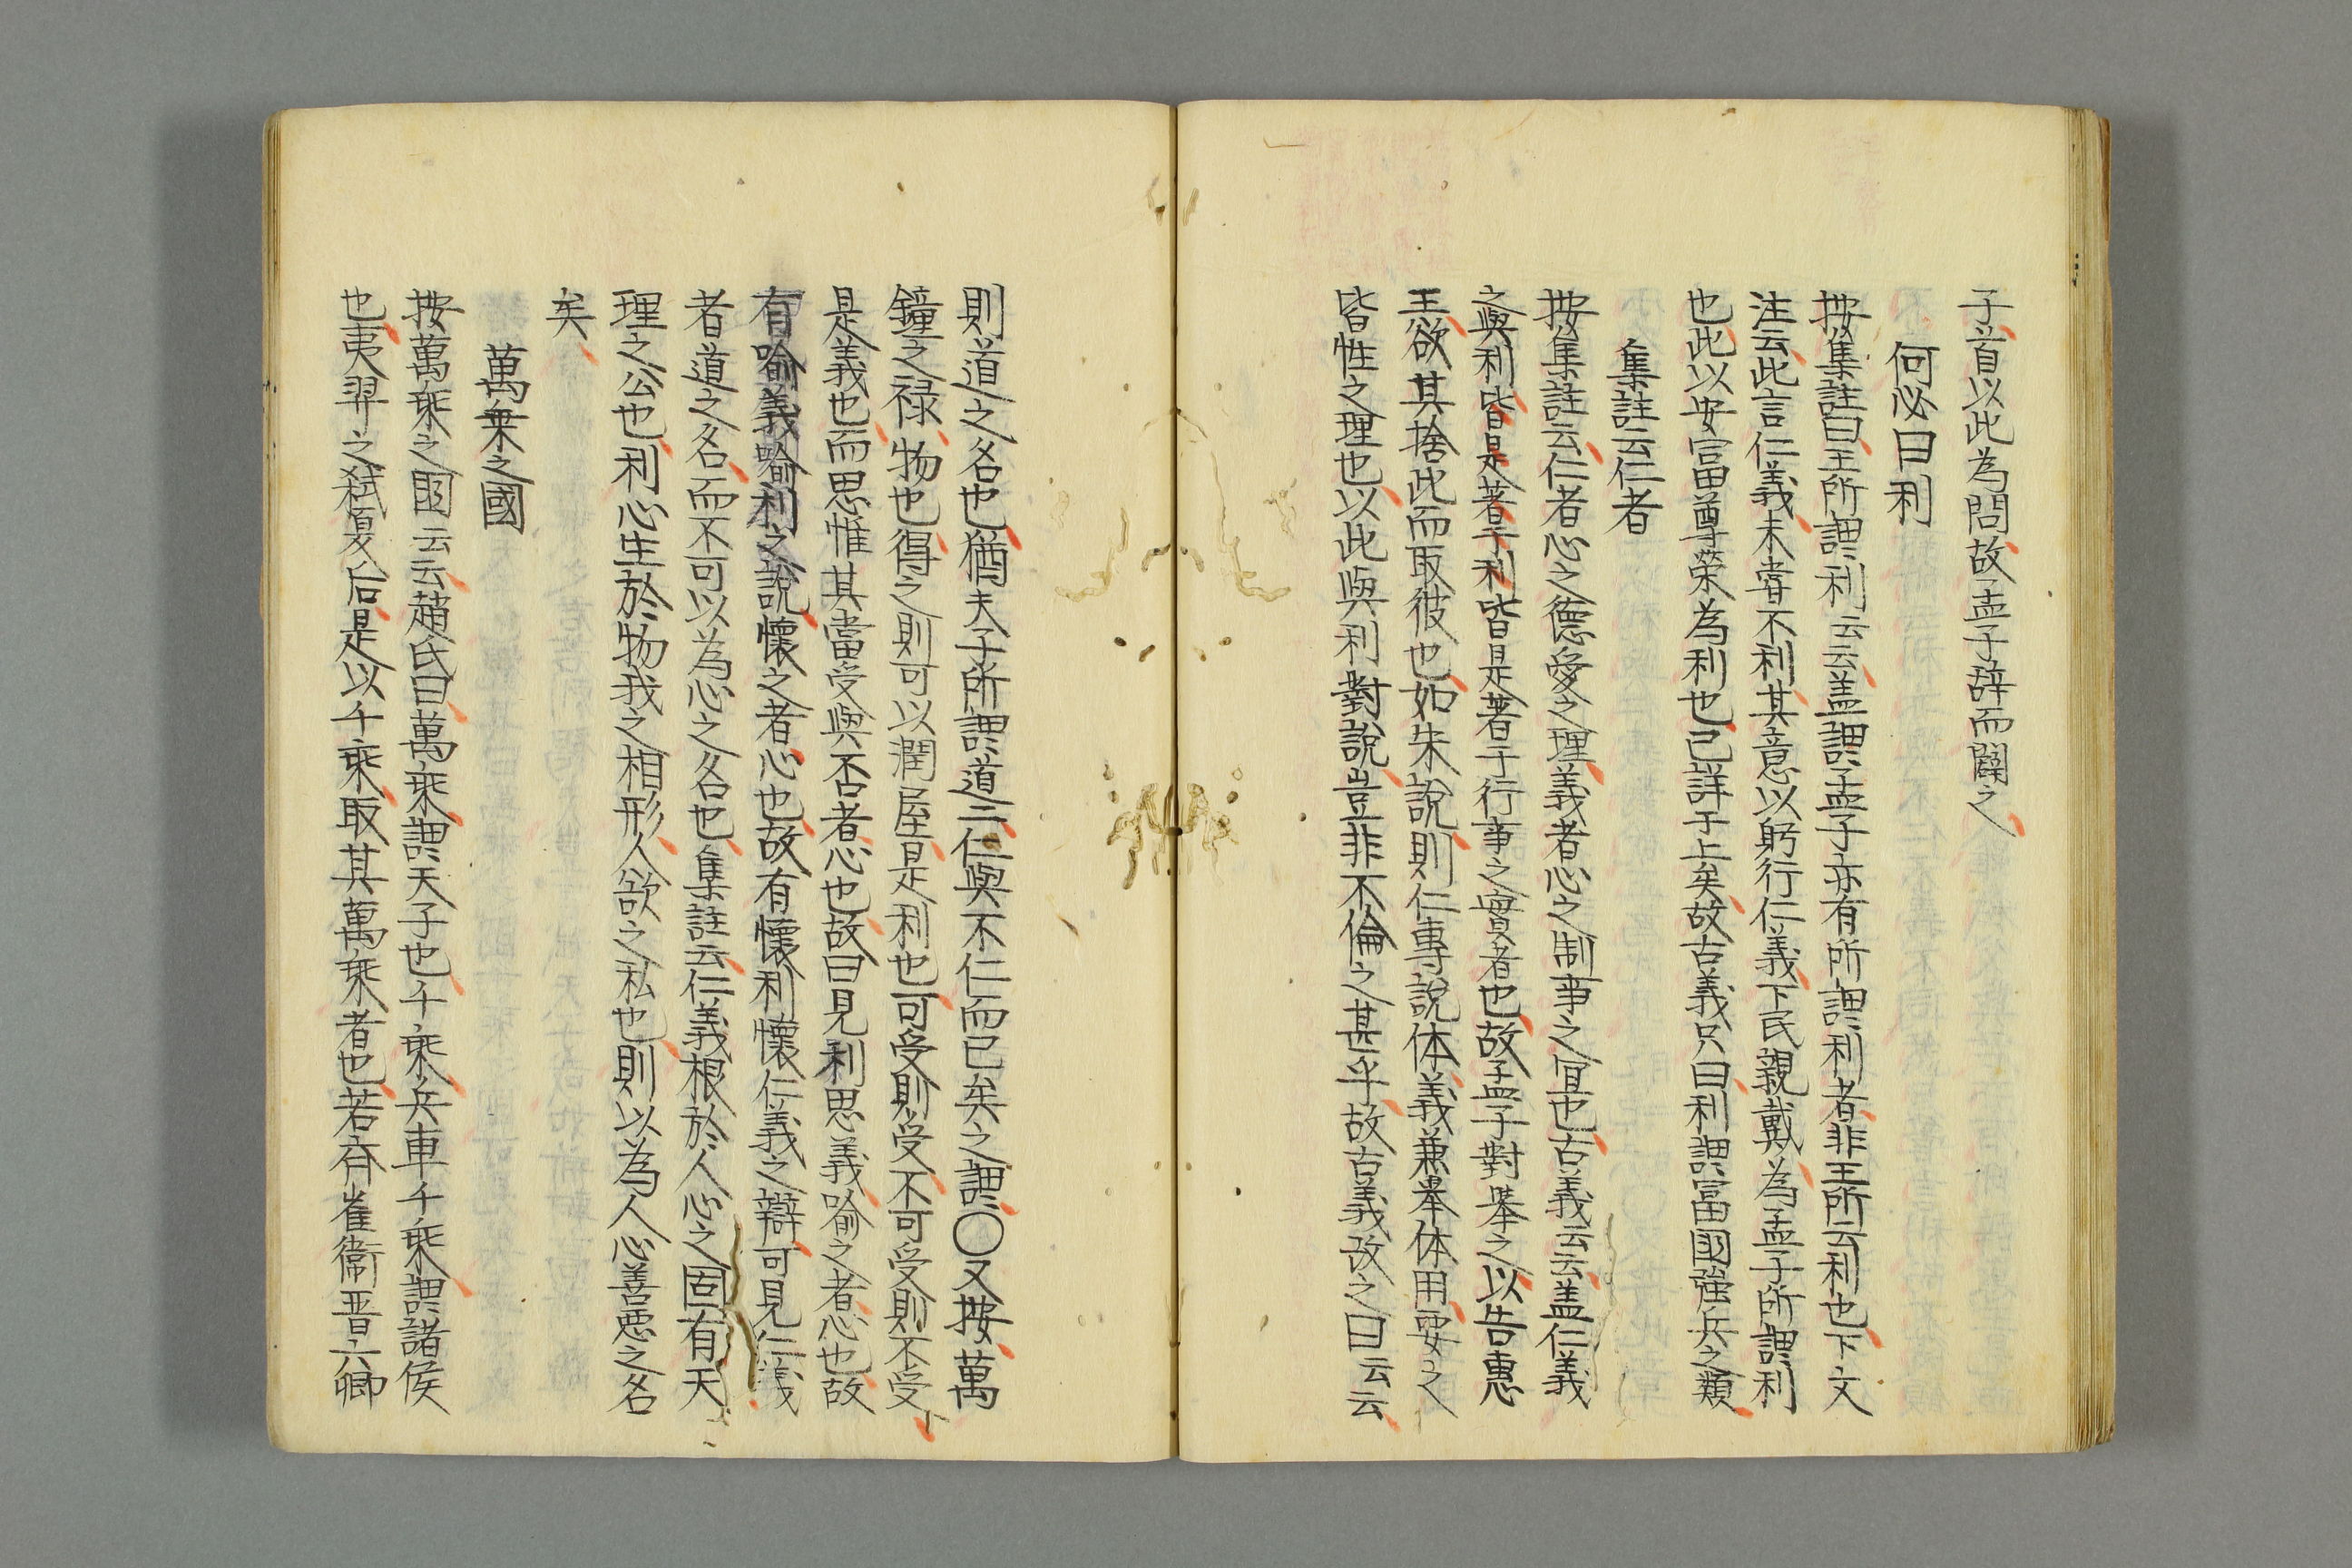 子首以此為問故孟子辞而闢之
何必曰利
按集註曰王所謂利云云盖謂孟子亦有所謂利者非王所云利也下文
注云此言仁義未嘗不利其意以躬行仁義下民親戴為孟子所謂利
也此以安富尊榮為利也已詳于上矣故古義只曰利謂富国強兵之類
集註云仁者
按集註云仁者心之德愛之理義者心之制事之宜也古義云云盖仁義
之與利皆是著于利皆是著于行事之實者也故孟子對举之以告惠
王欲其捨此而取彼也如朱說則仁專說体義兼举体用要之
皆性之理也以此與利對說豈非不倫之甚乎故古義改之曰云云
則道之名也猶夫子所謂道二仁與不仁而已矣之謂〇又按萬
鐘之禄物也得之則可以潤屋是利也可受則受不可受則不受
是義也而思惟其當受與不否者心也故曰見利思義喻之者心也故
有喻義喻利之說懷之者心也故有懷利懷仁義之辯可見仁義
者道之名而不可以為心之名也集註云仁義根於人心之固有天
理之公也利心生於物我之相形人欲之私也則以為人心善悪之名
矣
萬乗之國
按萬乗之国云云趙氏曰萬乗謂天子也千乗兵車千乗謂諸侯
也夷羿之弑夏后是以千乗取其萬乗者也若齐崔衛晋六卿